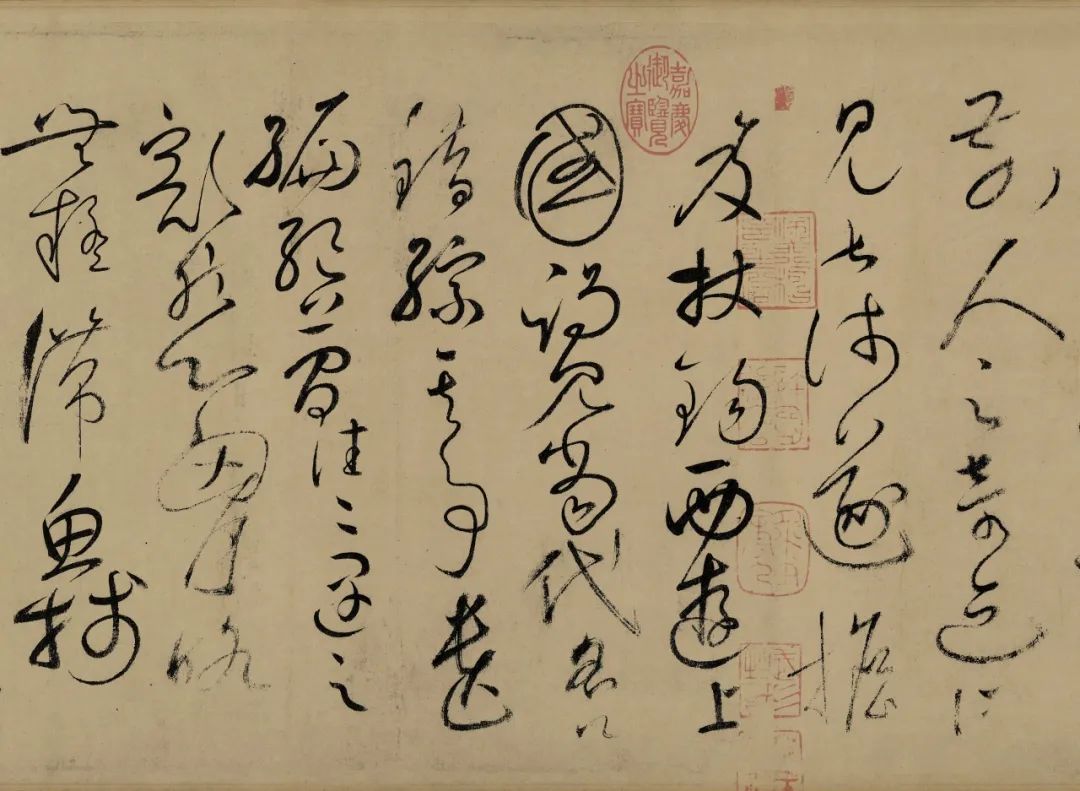 前人之奇迹所
見甚淺遂擔
笈杖錫西遊上
國謁見當代名公
錯綜其事遺
編絕簡往々遇之
豁然心胸略
無疑滯魚牋
嘉慶御覽之寶